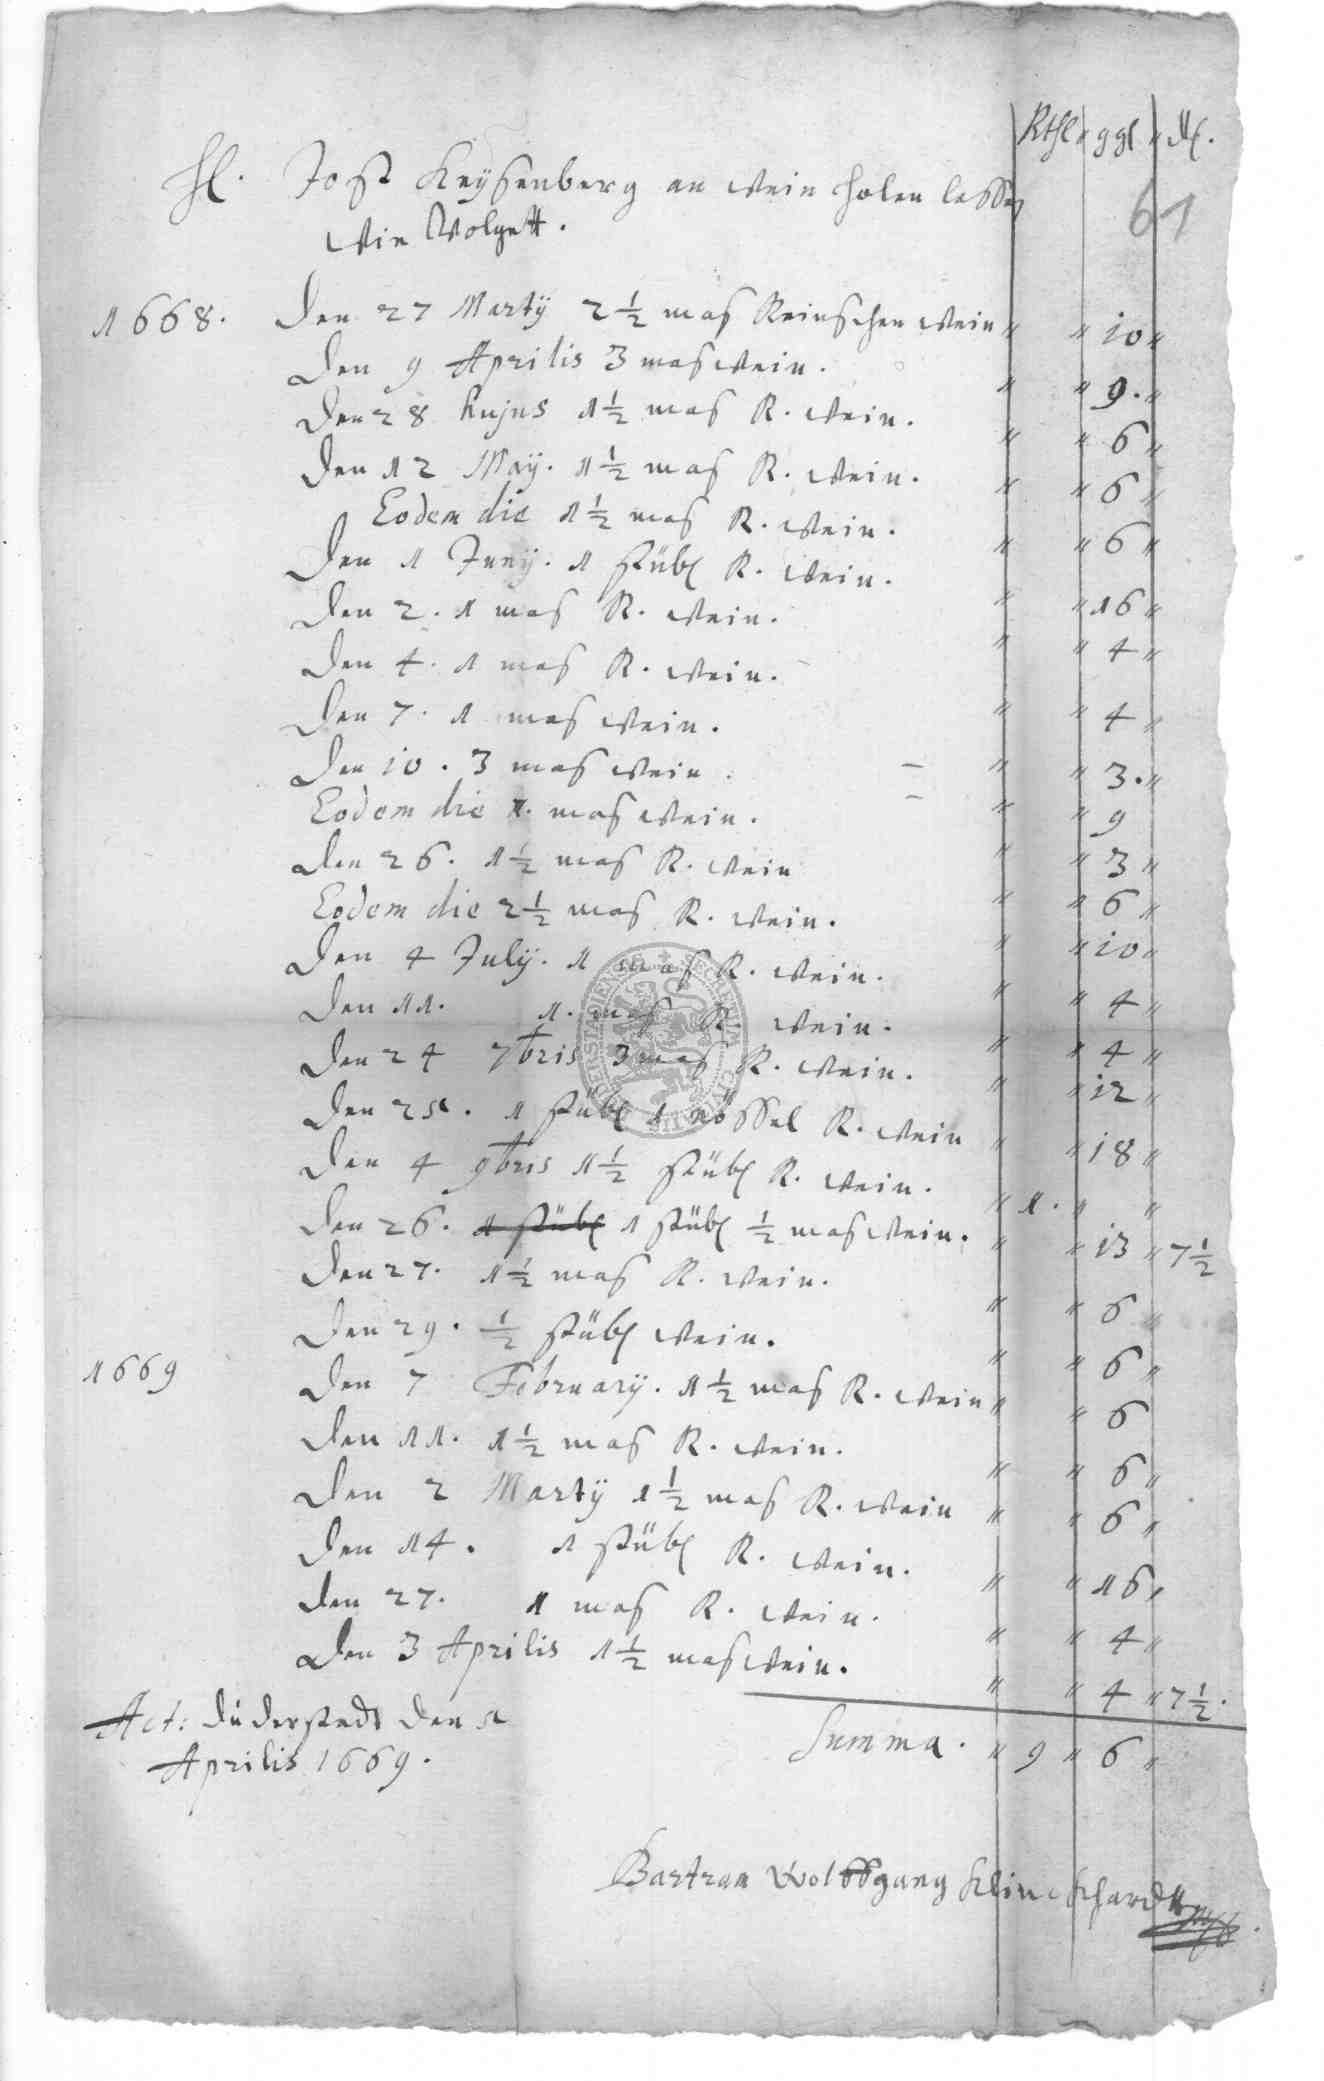 Rthl ggl ₰.
61
Hl. Jost Keysenberg an wein holen lassen
wie Volgett.
1668. Den 27 Martÿ 2 1/2 mas Reinschen wein " " 10 "
Den 9 Aprilis 3 mas wein. " " 9. "
Den 28 hujus 1 1/2 mas R. wein. " " 6 "
Den 12 Maÿ. 1 1/2 mas R. wein. " " 6 "
Eodem die 1 1/2 mas R. wein. " " 6 "
Den 1 Junÿ. 1 stübl R. wein. " " 16 "
Den 2. 1 mas R. wein. " " 4 "
Den 4. 1 mas R. wein. " " 4 "
Den 7. 1 mas wein. " " 3. "
Den 10. 3 mas wein. " " 9
Eodem die 1. mas wein. " " 3 "
Den 26. 1 1/2 mas R. wein " " 6 "
Eodem die 2 1/2 mas R. wein. " " 10 "
Den 4 Julÿ. 1 mas R. wein. " " 4 "
Den 11. 1. mas R wein. " " 4 "
Den 24 7bris 3 mas R. wein. " " 12 "
Den 25. 1 stübl 1 nössel R. wein " " 18 "
Den 4 9bris 1 1/2 stübl R. wein. " 1. " "
Den 26. 1 stübl 1 stübl 1/2 mas wein. " " 13 " 7 1/2
Den 27. 1 1/2 mas R. wein. " " 6 "
Den 29. 1/2 stübl wein. " " 6 "
1669 Den 7 Februarÿ. 1 1/2 mas R. wein " " 6
Den 11. 1 1/2 mas R. wein. " " 6 "
Den 2 Martÿ 1 1/2 mas R. wein " " 6 "
Den 14. 1 stübl R. wein. " " 16 "
Den 27. 1 mas R. wein. " " 4 "
Den 3 Aprilis 1 1/2 mas wein. " " 4 " 7 1/2.
Summa. " 9 " 6 "
Act: Düderstadt den 5
Aprilis 1669.
Bartram Wolffgang Klinckhardt
SECRETUM